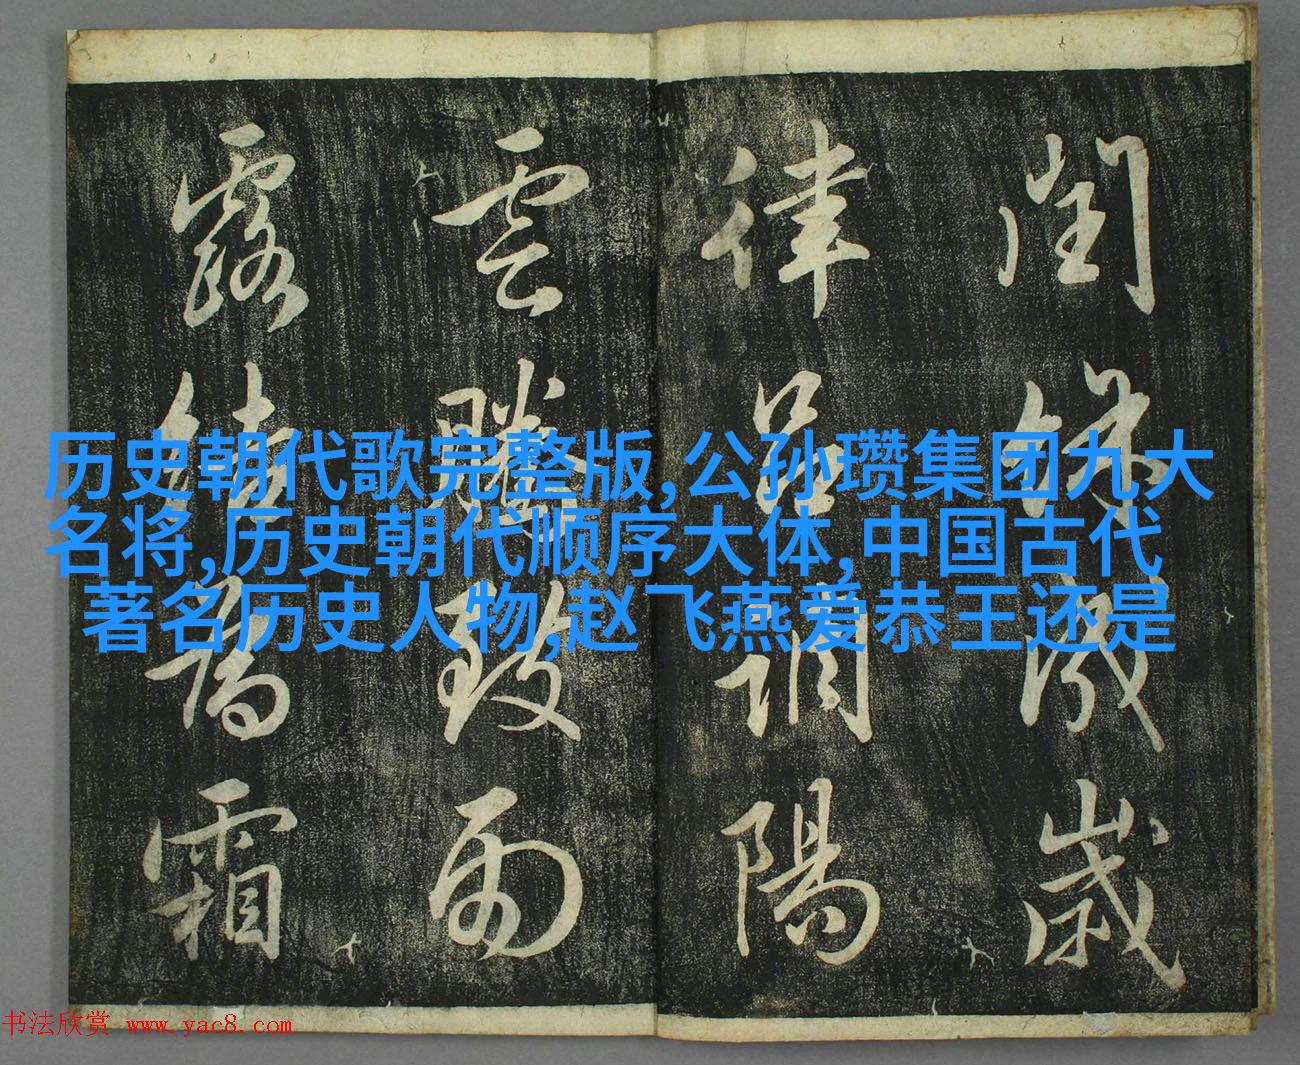 閏餘成歲
律呂調陽
雲騰致雨
露結為霜
历史朝代歌完整版,公孙瓒集团九大
名将,历史朝代顺序大体,中国古代
著名历史人物,赵飞燕爱恭王还是
书法欣赏 www.yac8.com